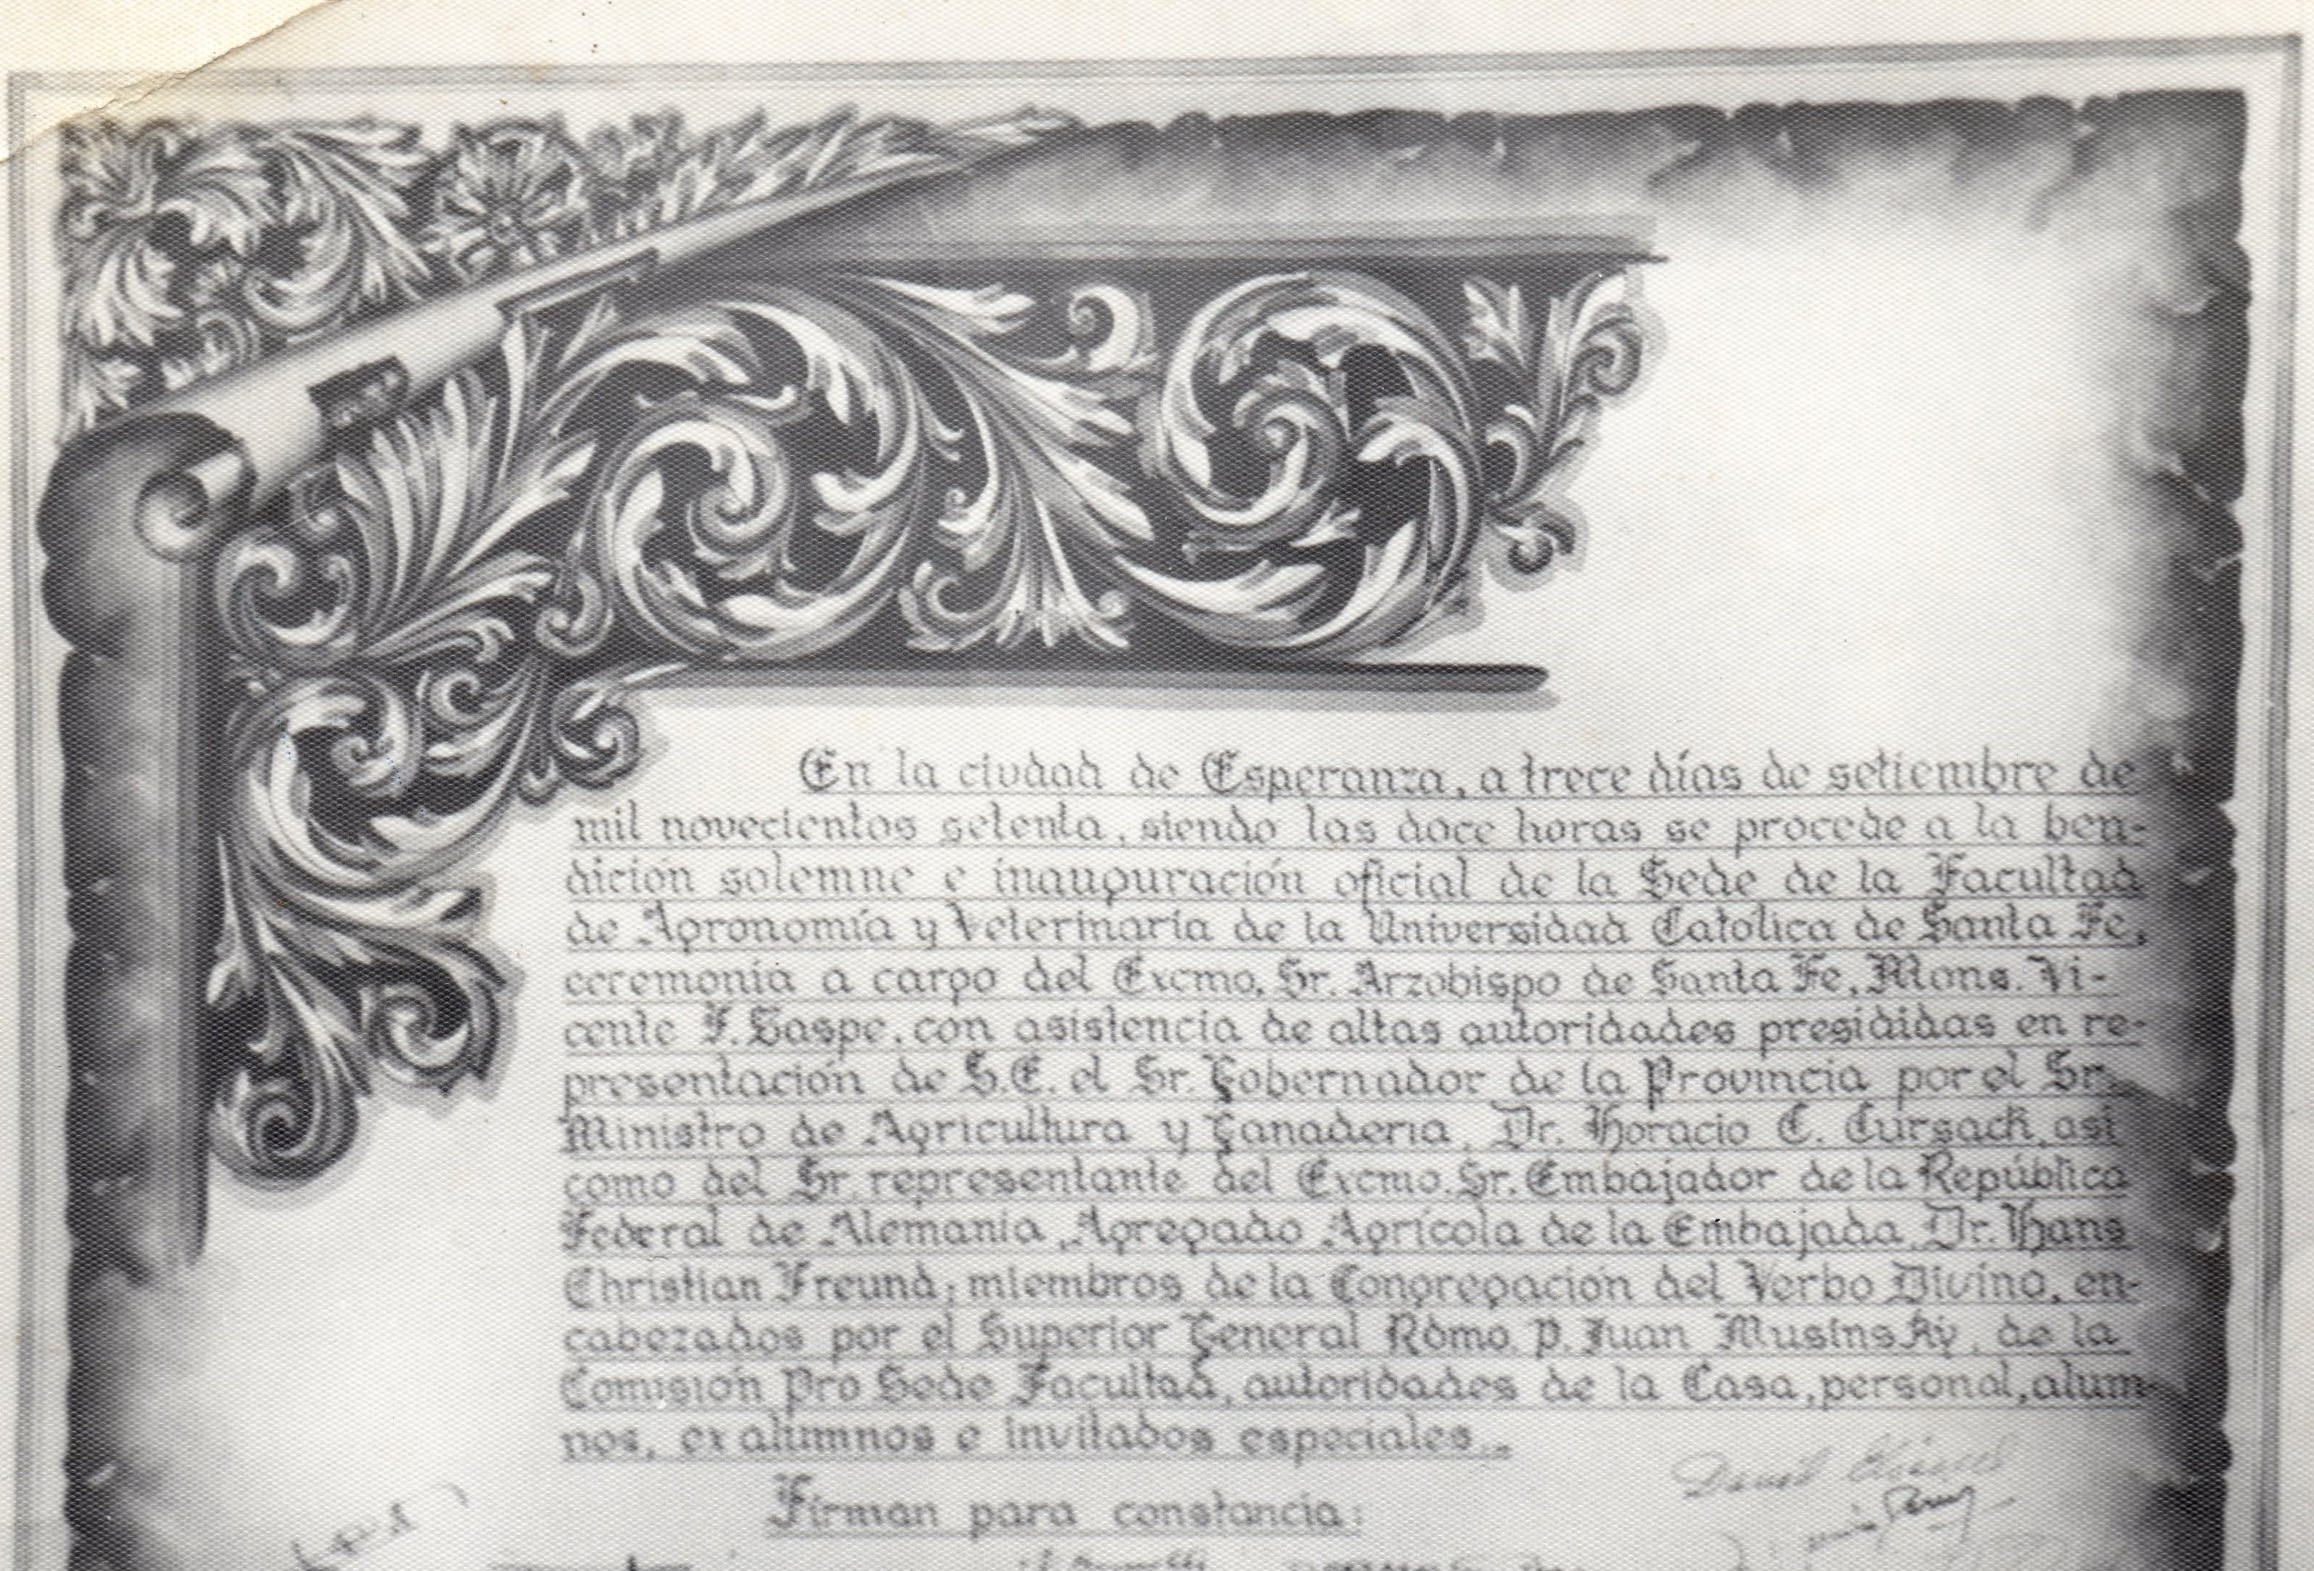 En la ciudad de Esperanza, a trece días de setiembre de
mil novecientos setenta, siendo las doce horas se procede a la ben-
dición solemne e inauguración oficial de la Sede de la Facultad
de Agronomía y Veterinaria de la Universidad Católica de Santa Fe,
ceremonia a cargo del Excmo. Sr. Arzobispo de Santa Fe, Mons. Vi-
cente F. Zaspe, con asistencia de altas autoridades presididas en re-
presentación de S.E. el Sr. Gobernador de la Provincia por el Sr.
Ministro de Agricultura y Ganadería, Dr. Horacio C. Cursack, asi
como del Sr. representante del Excmo. Sr. Embajador de la República
Federal de Alemania, Agregado Agrícola de la Embajada, Dr. Hans
Christian Freund; miembros de la Congregación del Verbo Divino, en-
cabezados por el Superior General Rdmo. P. Juan Musinsky, de la
Comisión Pro Sede Facultad, autoridades de la Casa, personal, alum-
nos, ex alumnos e invitados especiales...
Firman para constancia: